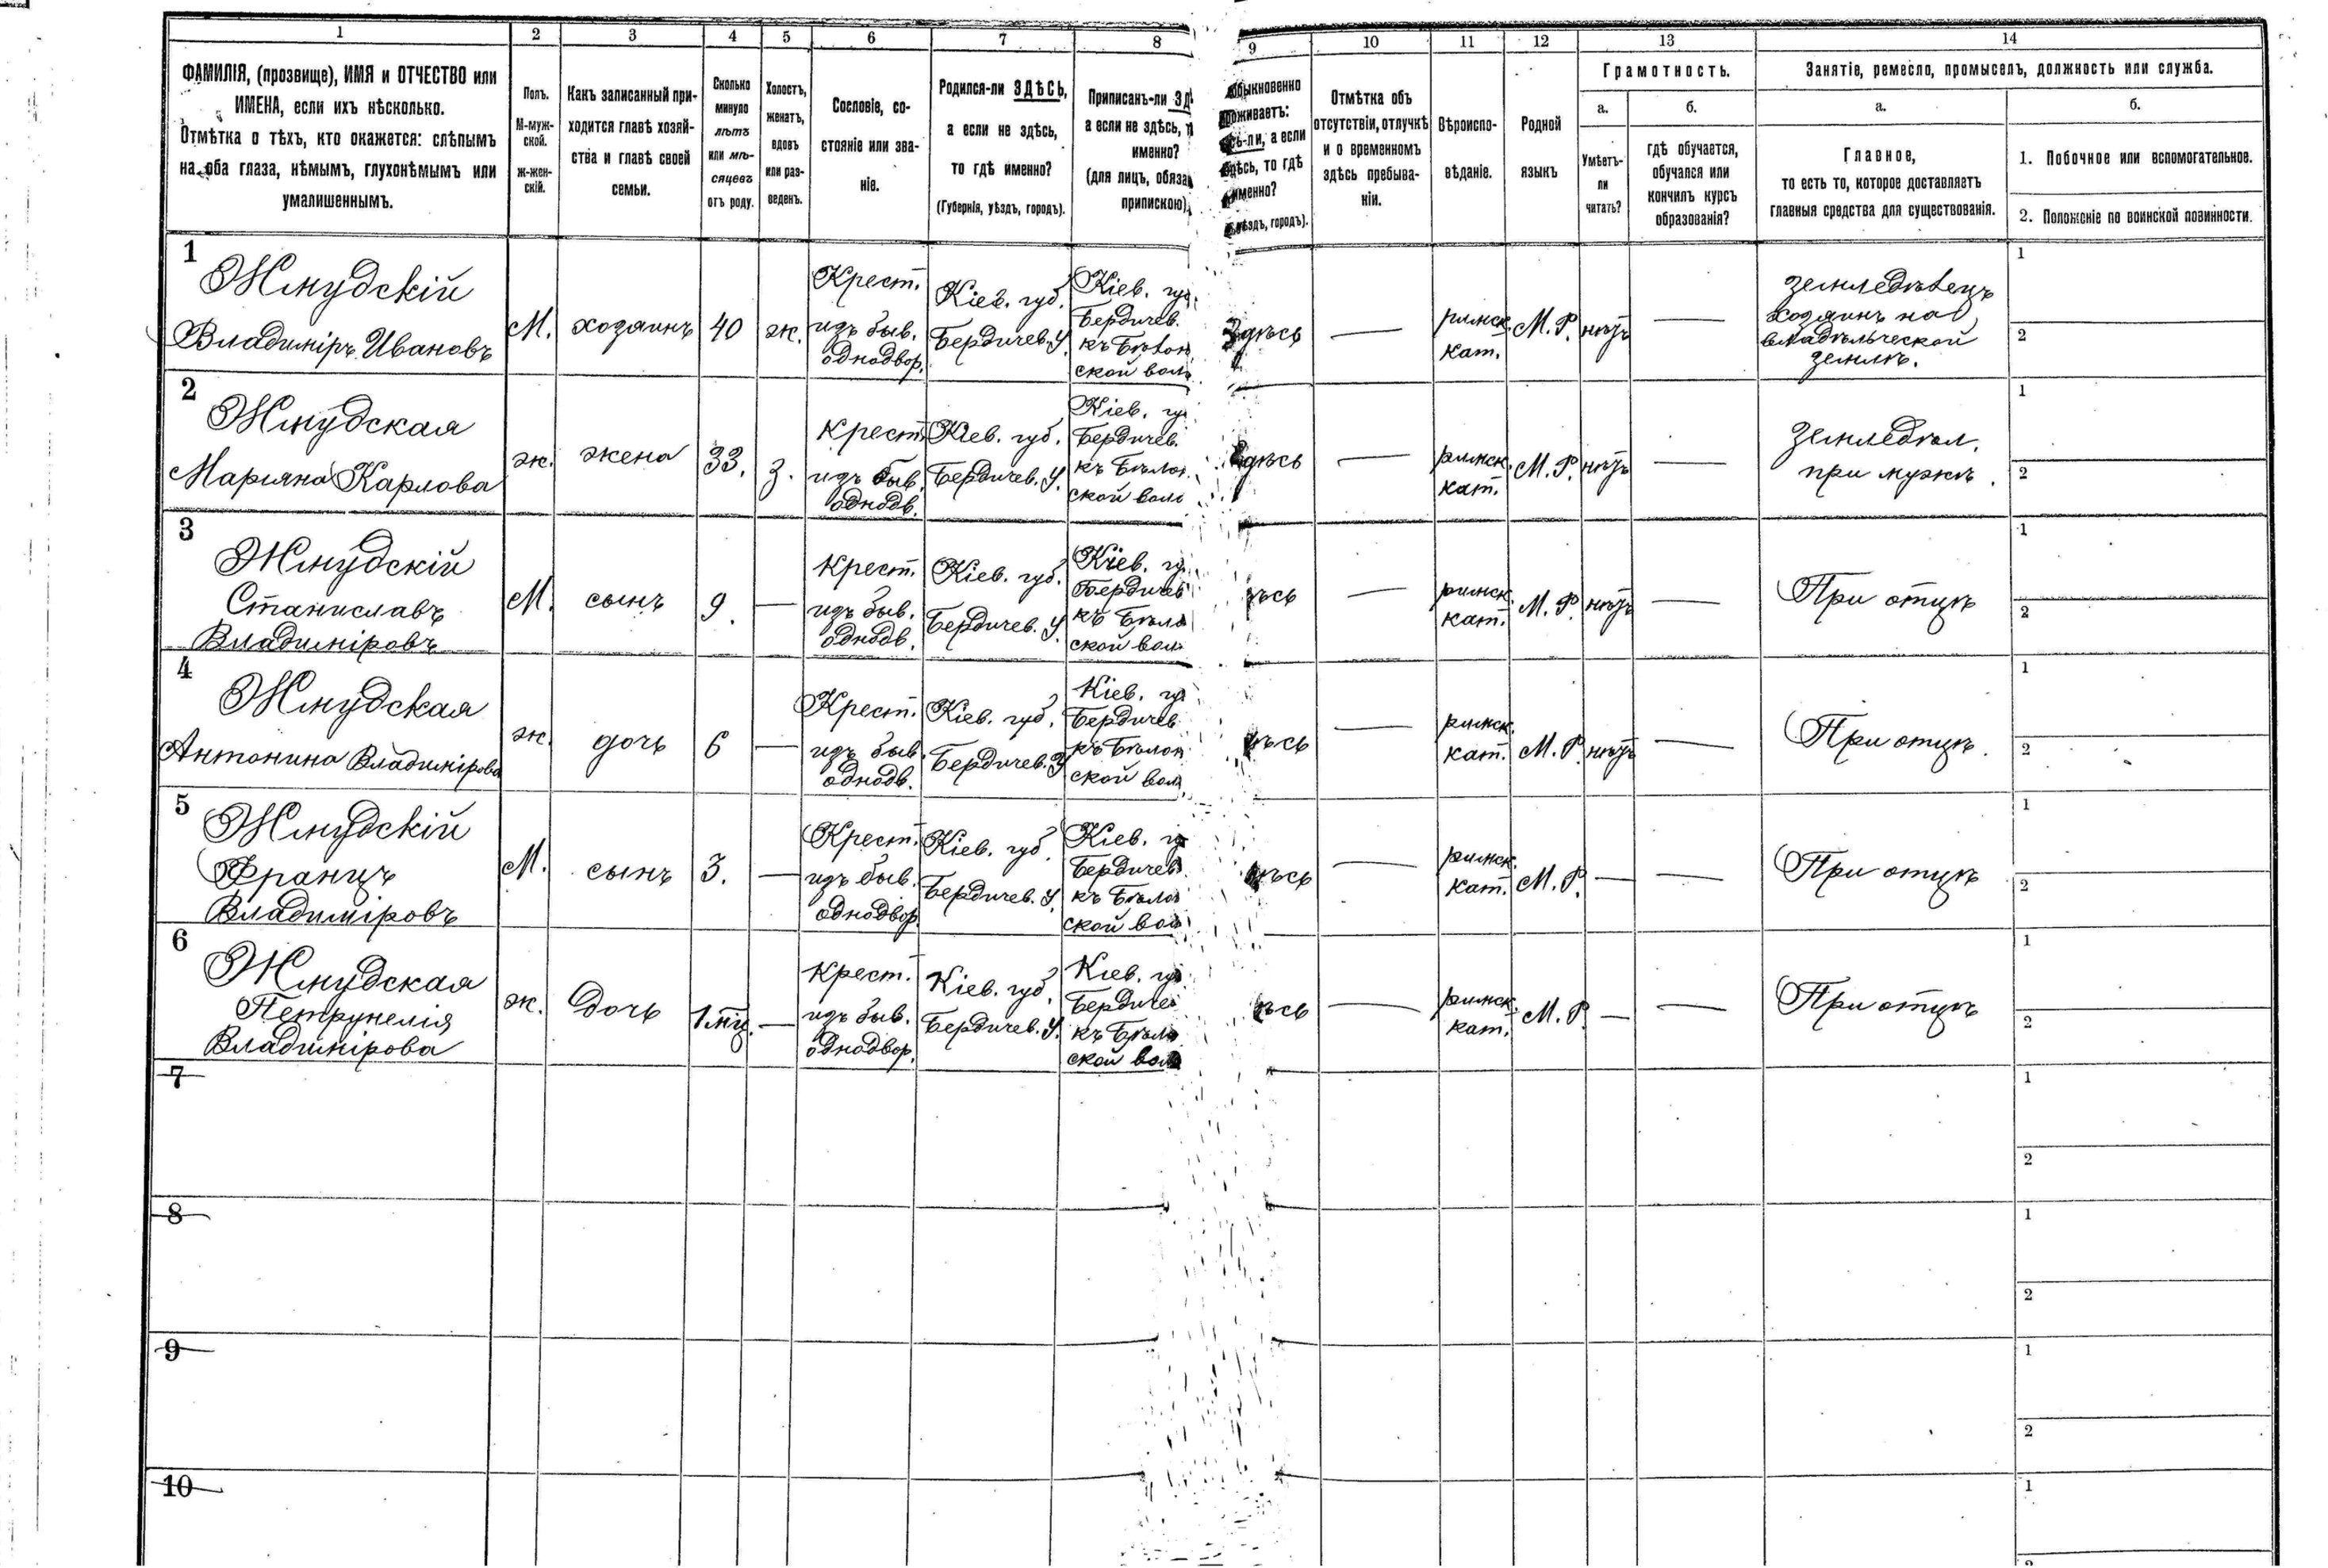 1 2 3 4 5 6 7 8 9 10 11 12 13 14
ФАМИЛІЯ, (прозвище), ИМЯ и ОТЧЕСТВО или
ИМЕНА, если ихъ нѣсколько.
Отмѣтка о тѣхъ, кто окажется: слѣпымъ
на оба глаза, нѣмымъ, глухонѣмымъ или
умалишеннымъ.
Полъ.
М-муж-
ской.
ж-жен-
скій.
Какъ записанный при-
ходится главѣ хозяй-
ства и главѣ своей
семьи.
Сколько
минуло
лѣтъ
или мѣ-
сяцевъ
отъ роду.
Холостъ,
женатъ,
вдовъ
или раз-
веденъ.
Сословіе, со-
стояніе или зва-
ніе.
Родился-ли ЗДѢСЬ,
а если не здѣсь,
то гдѣ именно?
(Губернія, уѣздъ, городъ).
Приписанъ-ли ЗД
а если не здѣсь, т
именно?
(для лицъ, обяза
припискою)
быкновенно
роживаетъ:
сь-ли, а если
здѣсь, то гдѣ
именно?
уѣздъ, городъ).
Отмѣтка объ
отсутствіи, отлучкѣ
и о временномъ
здѣсь пребыва-
ніи.
Вѣроиспо-
вѣданіе.
Родной
языкъ
Грамотность.
а.
б.
Умѣетъ-
ли
читать?
гдѣ обучается,
обучался или
кончилъ курсъ
образованія?
Занятіе, ремесло, промыселъ, должность или служба.
а.
б.
Главное,
то есть то, которое доставляетъ
главныя средства для существованія.
1. Побочное или вспомогательное.
2. Положеніе по воинской повинности.
1
Жмудскій
Владиміръ Ивановъ
М.
хозяинъ
40
ж.
Крест.
изъ быв.
однодвор.
Кіев. губ.
Бердичев. у.
Кіев. гу
Бердичев.
къ Бѣлоп
ской вол
Здѣсь
—
римск.
кат.
М. Р.
нѣтъ
—
земледѣлецъ
хозяинъ на
владѣльческой
землѣ.
1
2
2
Жмудская
Маріяна Карлова
ж.
жена
33.
з.
Крест.
изъ быв.
однодв.
Кіев. губ.
Бердичев. у.
Кіев. гу
Бердичев.
къ Бѣлоп
ской воло
Здѣсь
—
римск.
кат.
М. Р.
нѣтъ
—
земледѣл.
при мужѣ.
1
2
3
Жмудскій
Станиславъ
Владиміровъ
М.
сынъ
9.
—
Крест.
изъ быв.
однодв.
Кіев. губ.
Бердичев. у.
Кіев. гу
Бердичев
къ Бѣло
ской вол
ѣсь
—
римск.
кат.
М. Р.
нѣтъ
—
При отцѣ
1
2
4
Жмудская
Антонина Владимірова
ж.
дочь
6
—
Крест.
изъ быв.
однодв.
Кіев. губ.
Бердичев. у
Кіев. гу
Бердичев
къ Бѣлоп
ской вол
ѣсь
—
римск.
кат.
М. Р.
нѣтъ
—
При отцѣ.
1
2
5
Жмудскій
Францъ
Владиміровъ
М.
сынъ
3.
—
Крест.
изъ быв.
однодвор
Кіев. губ.
Бердичев. у.
Кіев. гу
Бердичев
къ Бѣлоп
ской вол
ѣсь
—
римск.
кат.
М. Р.
—
—
При отцѣ
1
2
6
Жмудская
Петрунелія
Владимірова
ж.
Дочь
1 мѣц.
—
Крест.
изъ быв.
однодвор.
Кіев. губ.
Бердичев. у.
Кіев. гу
Бердиче
къ Бѣло
ской вол
ѣсь
—
римск.
кат.
М. Р.
—
—
При отцѣ
1
2
7
1
2
8
1
2
9
1
2
10
1